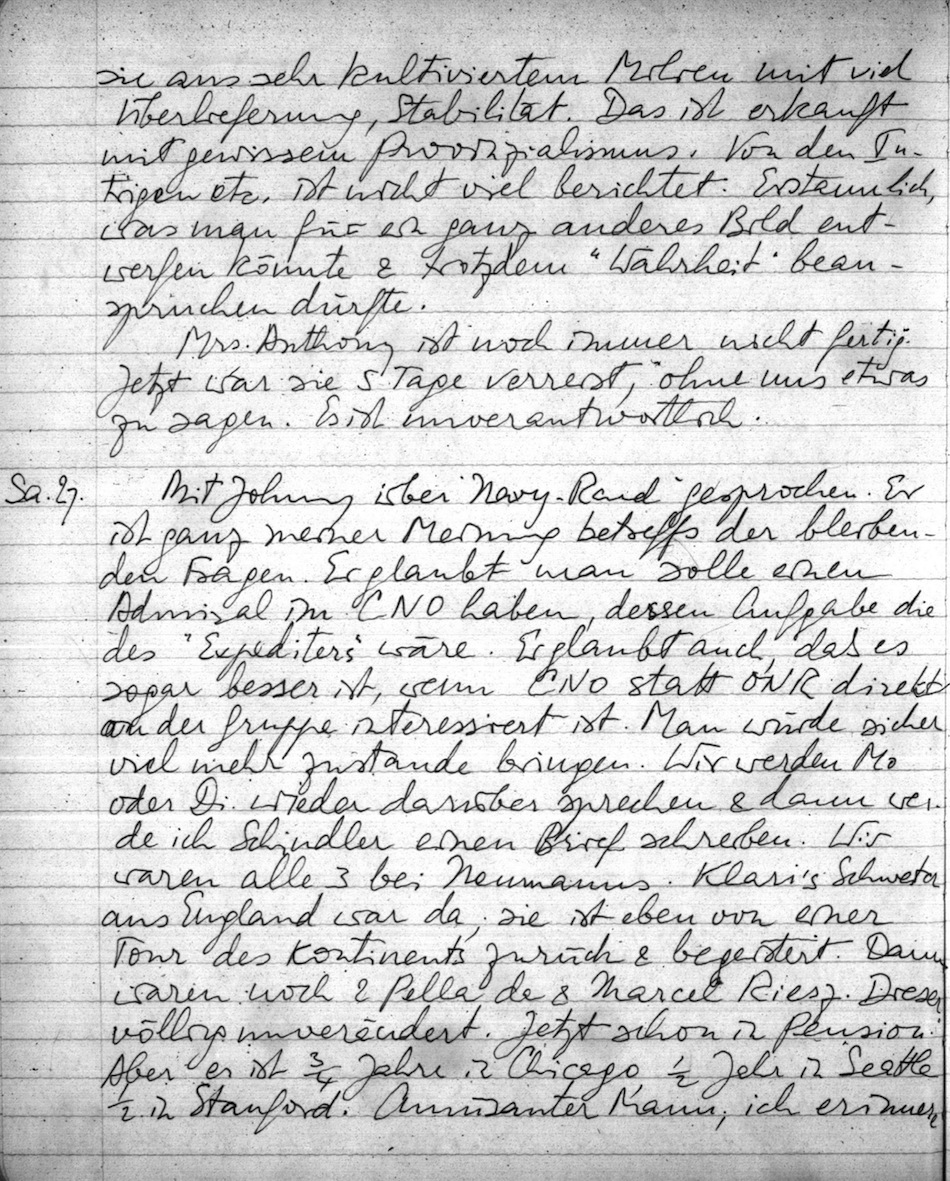 sie aus sehr kultiviertem Milieu mit viel
Überlieferung, Stabilität. Das ist erkauft
mit gewissem Provinzialismus. Von den In-
trigen etc. ist nicht viel berichtet. Erstaunlich,
was man für ein ganz anderes Bild ent-
werfen könnte & trotzdem "Wahrheit" bean-
spruchen dürfte.
Mrs. Anthony ist noch immer nicht fertig.
Jetzt war sie 5 Tage verreist, ohne uns etwas
zu sagen. Es ist unverantwortlich.
Sa. 27. Mit Johnny über "Navy-Rand" gesprochen. Er
ist ganz meiner Meinung betreffs der bleiben-
den Fragen. Er glaubt man solle einen
Admiral im CNO haben, dessen Aufgabe die
des "Expediters" wäre. Er glaubt auch, daß es
sogar besser ist, wenn CNO statt ONR direkt
an der Gruppe interessiert ist. Man würde sicher
viel mehr zustande bringen. Wir werden Mo
oder Di. wieder darüber sprechen & dann wer-
de ich Schindler einen Brief schreiben. Wir
waren alle 3 bei Neumanns. Klari's Schwester
aus England war da, sie ist eben von einer
Tour des Kontinents zurück & begeistert. Dann
waren noch 2 Pella da & Marcel Riesz. Dieser
völlig unverändert. Jetzt schon in Pension.
Aber er ist ¾ Jahre in Chicago, ½ Jahr in Seattle
½ in Stanford. Amüsanter Mann, ich erinnere